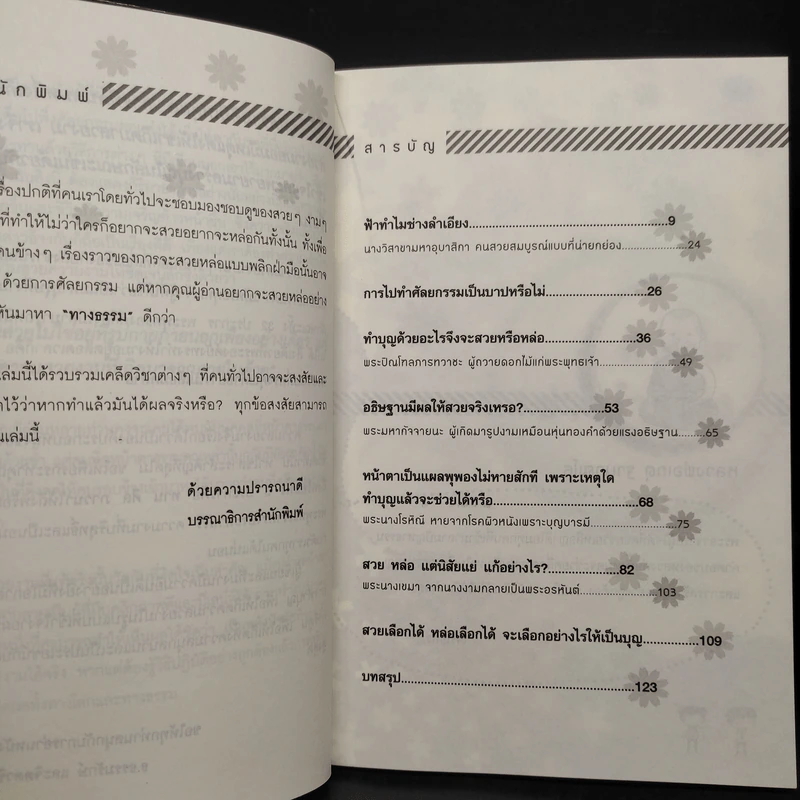 นักพิมพ์
รื่องปกติที่คนเราโดยทั่วไปจะชอบมองชอบดูของสวยๆ งามๆ
ที่ทำให้ไม่ว่าใครก็อยากจะสวยอยากจะหล่อกันทั้งนั้น ทั้งเพื่อ
คนข้างๆ เรื่องราวของการจะสวยหล่อแบบพลิกฝ่ามือนั้นอาจ
ด้วยการศัลยกรรม แต่หากคุณผู้อ่านอยากจะสวยหล่ออย่าง
หันมาหา "ทางธรรม" ดีกว่า
เล่มนี้ได้รวบรวมเคล็ดวิชาต่างๆ ที่คนทั่วไปอาจจะสงสัยและ
ไว้ว่าหากทำแล้วมันได้ผลจริงหรือ? ทุกข้อสงสัยสามารถ
นเล่มนี้
ด้วยความปรารถนาดี
บรรณาธิการสำนักพิมพ์
สารบัญ
ฟ้าทำไมช่างลำเอียง..................................................9
นางวิสาขามหาอุบาสิกา คนสวยสมบูรณ์แบบที่น่ายกย่อง.................24
การไปทำศัลยกรรมเป็นบาปหรือไม่..........................26
ทำบุญด้วยอะไรจึงจะสวยหรือหล่อ..........................36
พระปิณโฑลภารทวาชะ ผู้ถวายดอกไม้แก่พระพุทธเจ้า....................49
อธิษฐานมีผลให้สวยจริงเหรอ?....................53
พระมหากัจจายนะ ผู้เกิดมารูปงามเหมือนหุ่นทองคำด้วยแรงอธิษฐาน.......65
หน้าตาเป็นแผลพุพองไม่หายสักที เพราะเหตุใด
ทำบุญแล้วจะช่วยได้หรือ...................................68
พระนางโรหิณี หายจากโรคผิวหนังเพราะบุญบารมี.....................75
สวย หล่อ แต่นิสัยแย่ แก้อย่างไร?..................82
พระนางเขมา จากนางงามกลายเป็นพระอรหันต์...................103
สวยเลือกได้ หล่อเลือกได้ จะเลือกอย่างไรให้เป็นบุญ..............109
บทสรุป..........................................................123